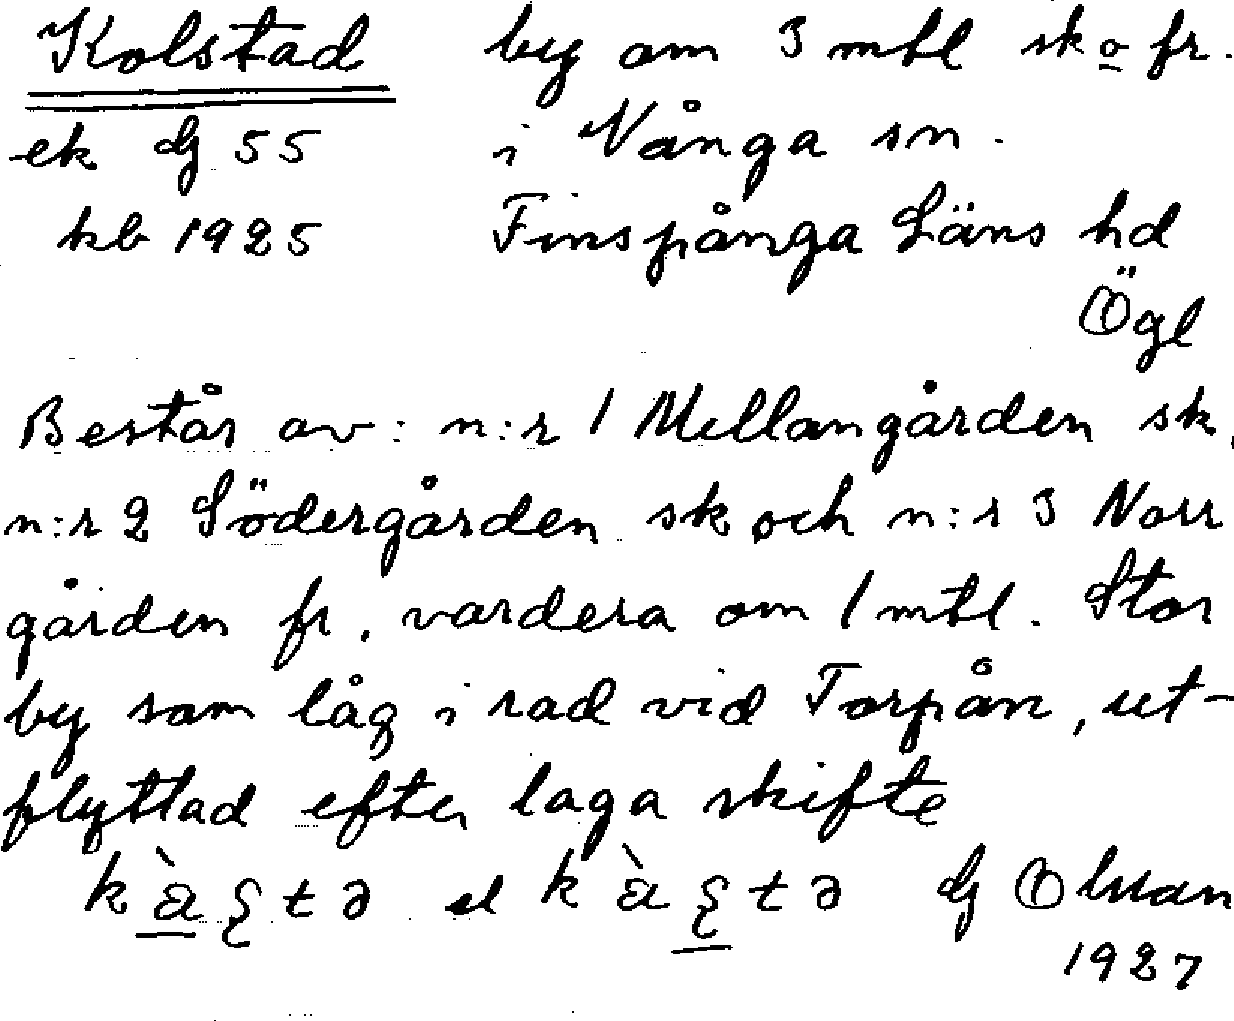 Kolstad by om 3 mtl sk o fr.
ek dG 55 i Vånga sn.
kb 1925 Finspånga Läns hd
Ögl
Består av: n:r 1 Mellangården sk,
n:r 2 Södergården sk och n:r 3 Norr
gården fr, vardera om 1 mtl. Stor
by som låg i rad vid Torpån, ut-
flyttad efter laga skifte
el Olsson
1927